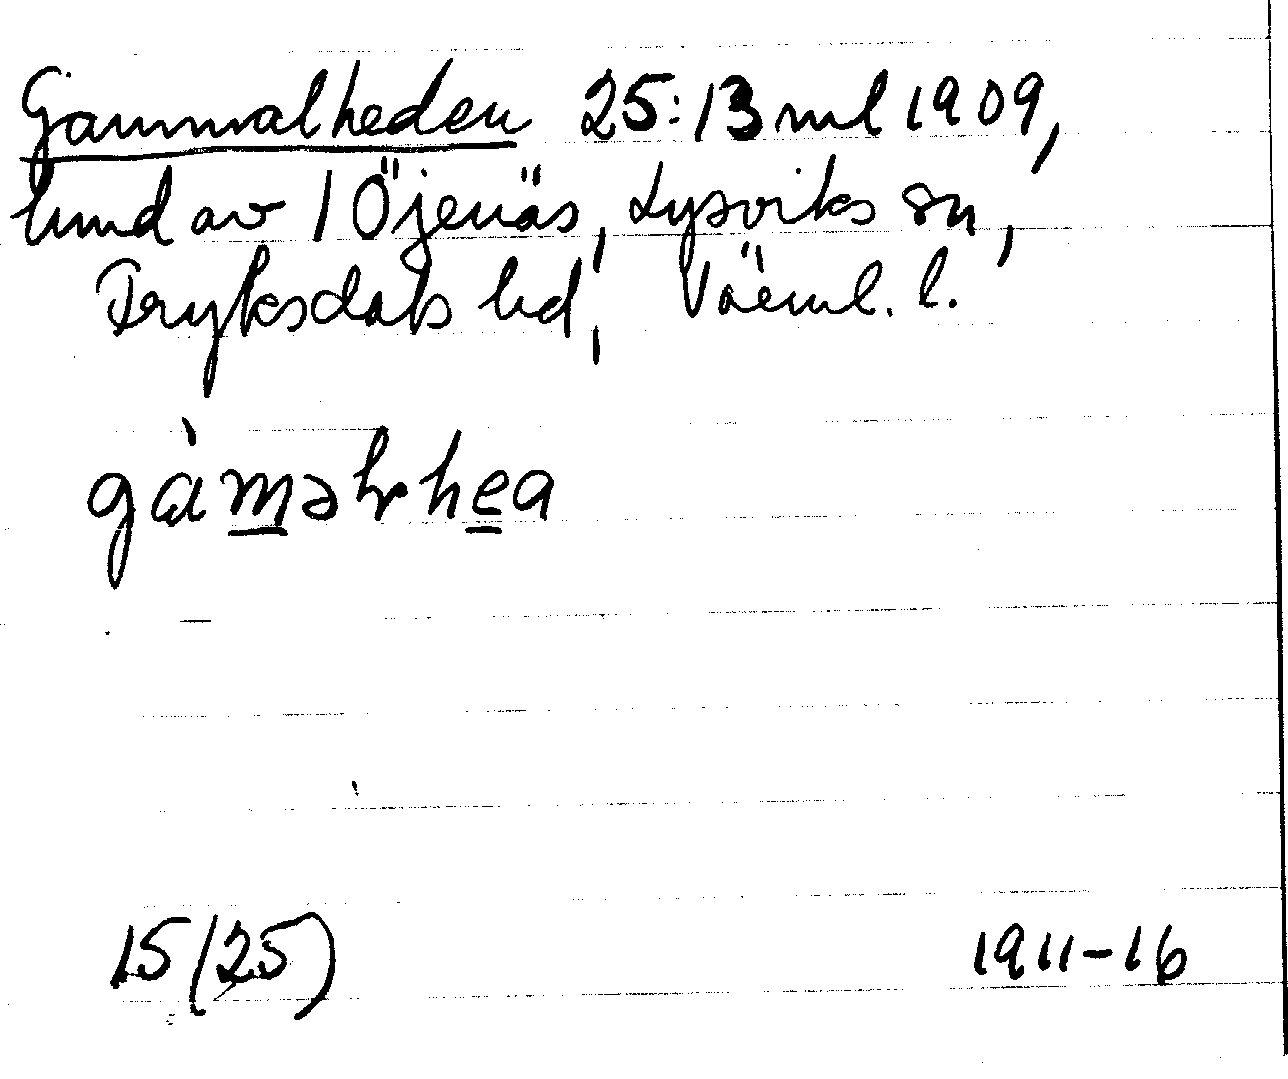 Gammalheden 25:13 ml 1909,
hmd av 1 Öjenäs, Lysviks sn,
Fryksdals hd, Värml. l.
gàmərhea
15 (25)
1911-16